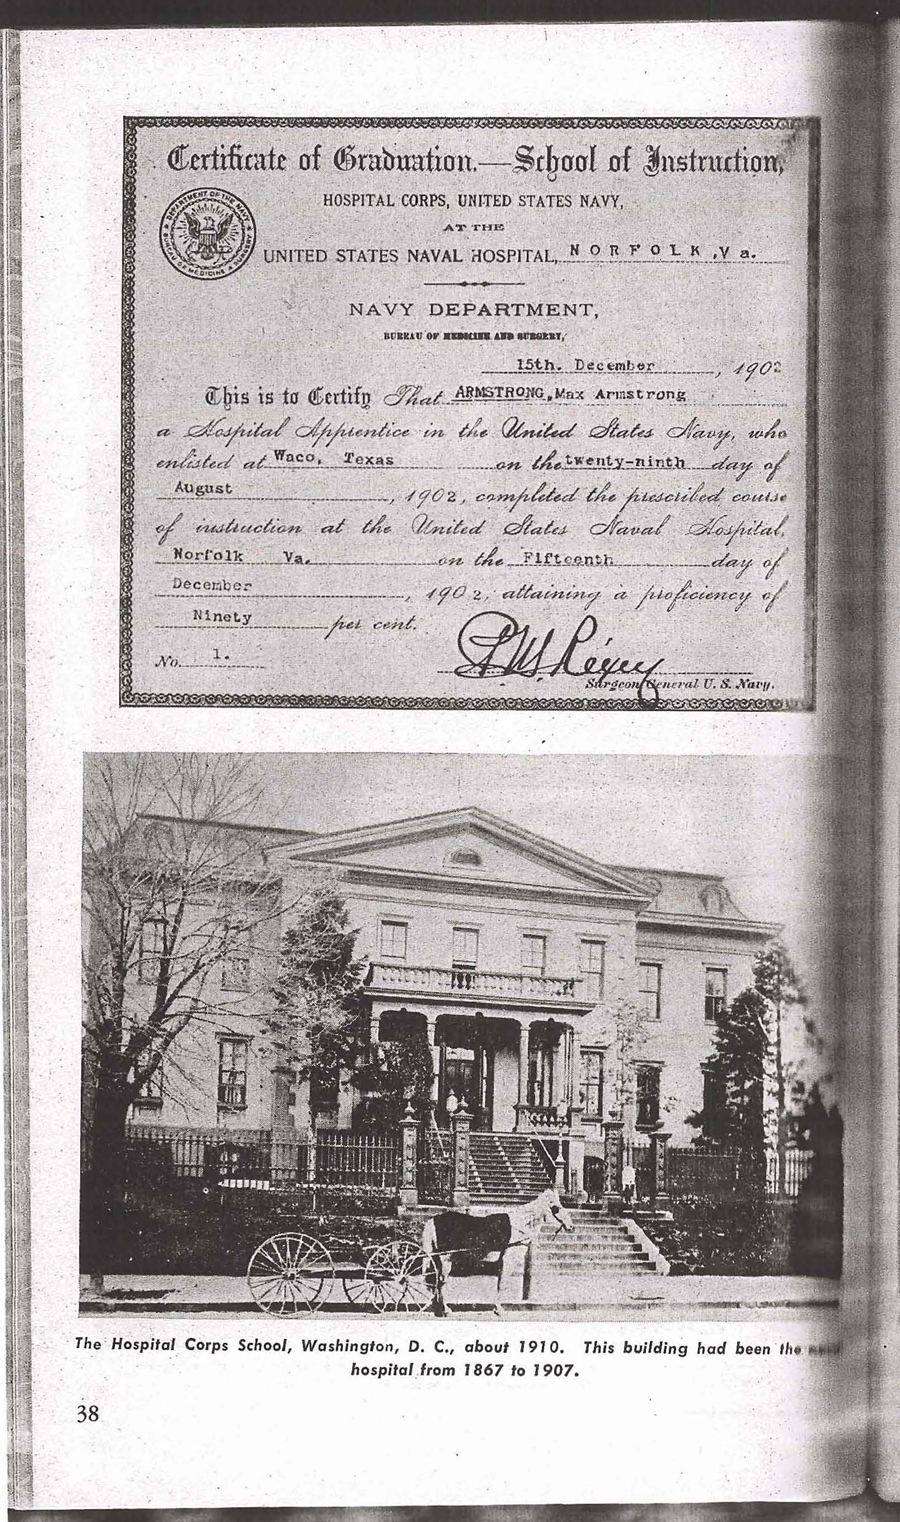 Certificate of Graduation.—School of Instruction,
HOSPITAL CORPS, UNITED STATES NAVY,
AT THE
UNITED STATES NAVAL HOSPITAL, NORFOLK, Va.
DEPARTMENT OF THE NAVY
BUREAU OF MEDICINE & SURGERY
NAVY DEPARTMENT,
BUREAU OF MEDICINE AND SURGERY,
15th. December, 1902
This is to Certify That ARMSTRONG, Max Armstrong
a Hospital Apprentice in the United States Navy, who
enlisted at Waco, Texas on the twenty-ninth day of
August, 1902, completed the prescribed course
of instruction at the United States Naval Hospital,
Norfolk Va. on the Fifteenth day of
December, 1902, attaining a proficiency of
Ninety per cent.
No. 1.
Surgeon General U. S. Navy.
The Hospital Corps School, Washington, D. C., about 1910. This building had been the
hospital from 1867 to 1907.
38